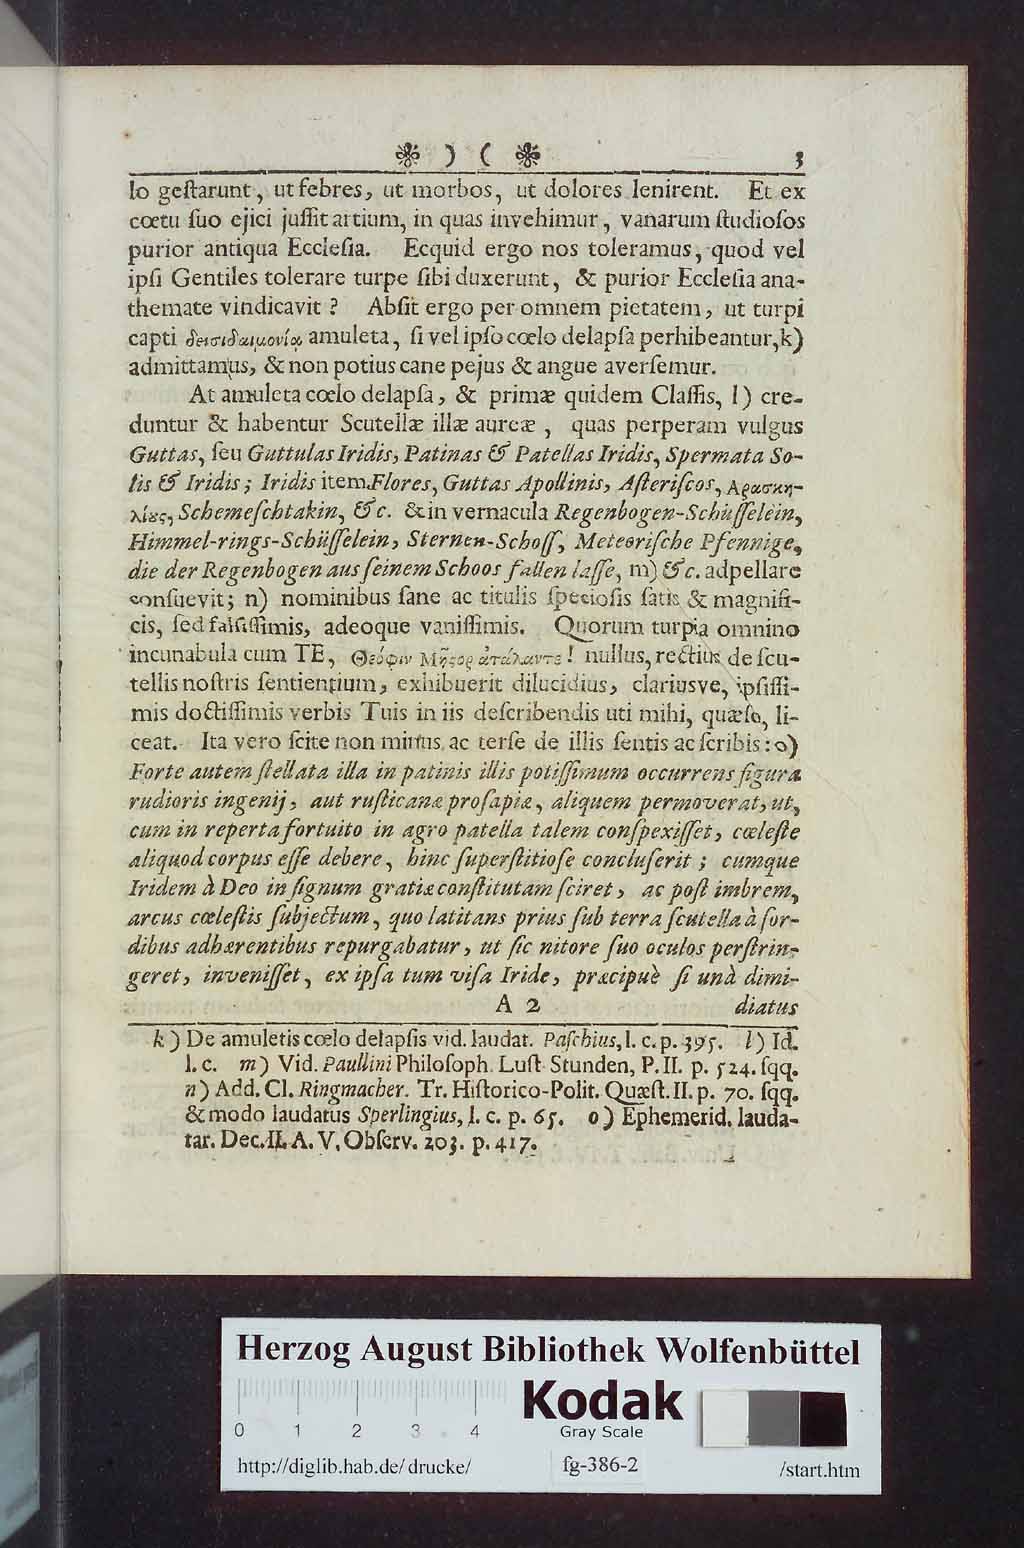 ❧ ) ( ❧ 3
lo geſtarunt, ut febres, ut morbos, ut dolores lenirent. Et ex
cœtu ſuo ejici juſſit artium, in quas invehimur, vanarum ſtudioſos
purior antiqua Eccleſia. Ecquid ergo nos toleramus, quod vel
ipſi Gentiles tolerare turpe ſibi duxerunt, & purior Eccleſia ana-
themate vindicavit? Abſit ergo per omnem pietatem, ut turpi
capti δεισιδαιμονίᾳ amuleta, ſi vel ipſo cœlo delapſa perhibeantur, k)
admittamus, & non potius cane pejus & angue averſemur.
At amuleta cœlo delapſa, & primæ quidem Claſſis, l) cre-
duntur & habentur Scutellæ illæ aureæ, quas perperam vulgus
Guttas, ſeu Guttulas Iridis, Patinas & Patellas Iridis, Spermata So-
lis & Iridis; Iridis item Flores, Guttas Apollinis, Aſteriſcos, Αρασκη-
λίȣς, Schemeſchtakin, &c. & in vernacula Regenbogen-Schüſſelein,
Himmel-rings-Schüſſelein, Sternen-Schoſſ, Meteoriſche Pfennige,
die der Regenbogen aus ſeinem Schoos fallen laſſe, m) &c. adpellare
conſuevit; n) nominibus ſane ac titulis ſpecioſis ſatis & magnifi-
cis, ſed falſiſſimis, adeoque vaniſſimis. Quorum turpia omnino
incunabula cum TE, Θεόφιν Μήςορ ἀτάλαντε! nullus, rectius de ſcu-
tellis noſtris ſentientium, exhibuerit dilucidius, clariusve, ipſiſſi-
mis doctiſſimis verbis Tuis in iis deſcribendis uti mihi, quæſo, li-
ceat. Ita vero ſcite non minus ac terſe de illis ſentis ac ſcribis: o)
Forte autem ſtellata illa in patinis illis potiſſimum occurrens figura
rudioris ingenij, aut ruſticanæ proſapiæ, aliquem permoverat, ut,
cum in reperta fortuito in agro patella talem conſpexiſſet, cœleſte
aliquod corpus eſſe debere, hinc ſuperſtitioſe concluſerit; cumque
Iridem à Deo in ſignum gratiæ conſtitutam ſciret, ac poſt imbrem,
arcus cœleſtis ſubjectum, quo latitans prius ſub terra ſcutella à ſor-
dibus adhærentibus repurgabatur, ut ſic nitore ſuo oculos perſtrin-
geret, inveniſſet, ex ipſa tum viſa Iride, præcipuè ſi unà dimi-
A 2 diatus
k) De amuletis cœlo delapſis vid. laudat. Paſchius, l. c. p. 395. l) Id.
l. c. m) Vid. Paullini Philoſoph. Luſt-Stunden, P. II. p. 524. ſqq.
n) Add. Cl. Ringmacher. Tr. Hiſtorico-Polit. Quæſt. II. p. 70. ſqq.
& modo laudatus Sperlingius, l. c. p. 65. o) Ephemerid. lauda-
tar. Dec. II. A. V. Obſerv. 203. p. 417.
Herzog August Bibliothek Wolfenbüttel
Kodak
0 1 2 3 4
Gray Scale
http://diglib.hab.de/drucke/ fg-386-2 /start.htm